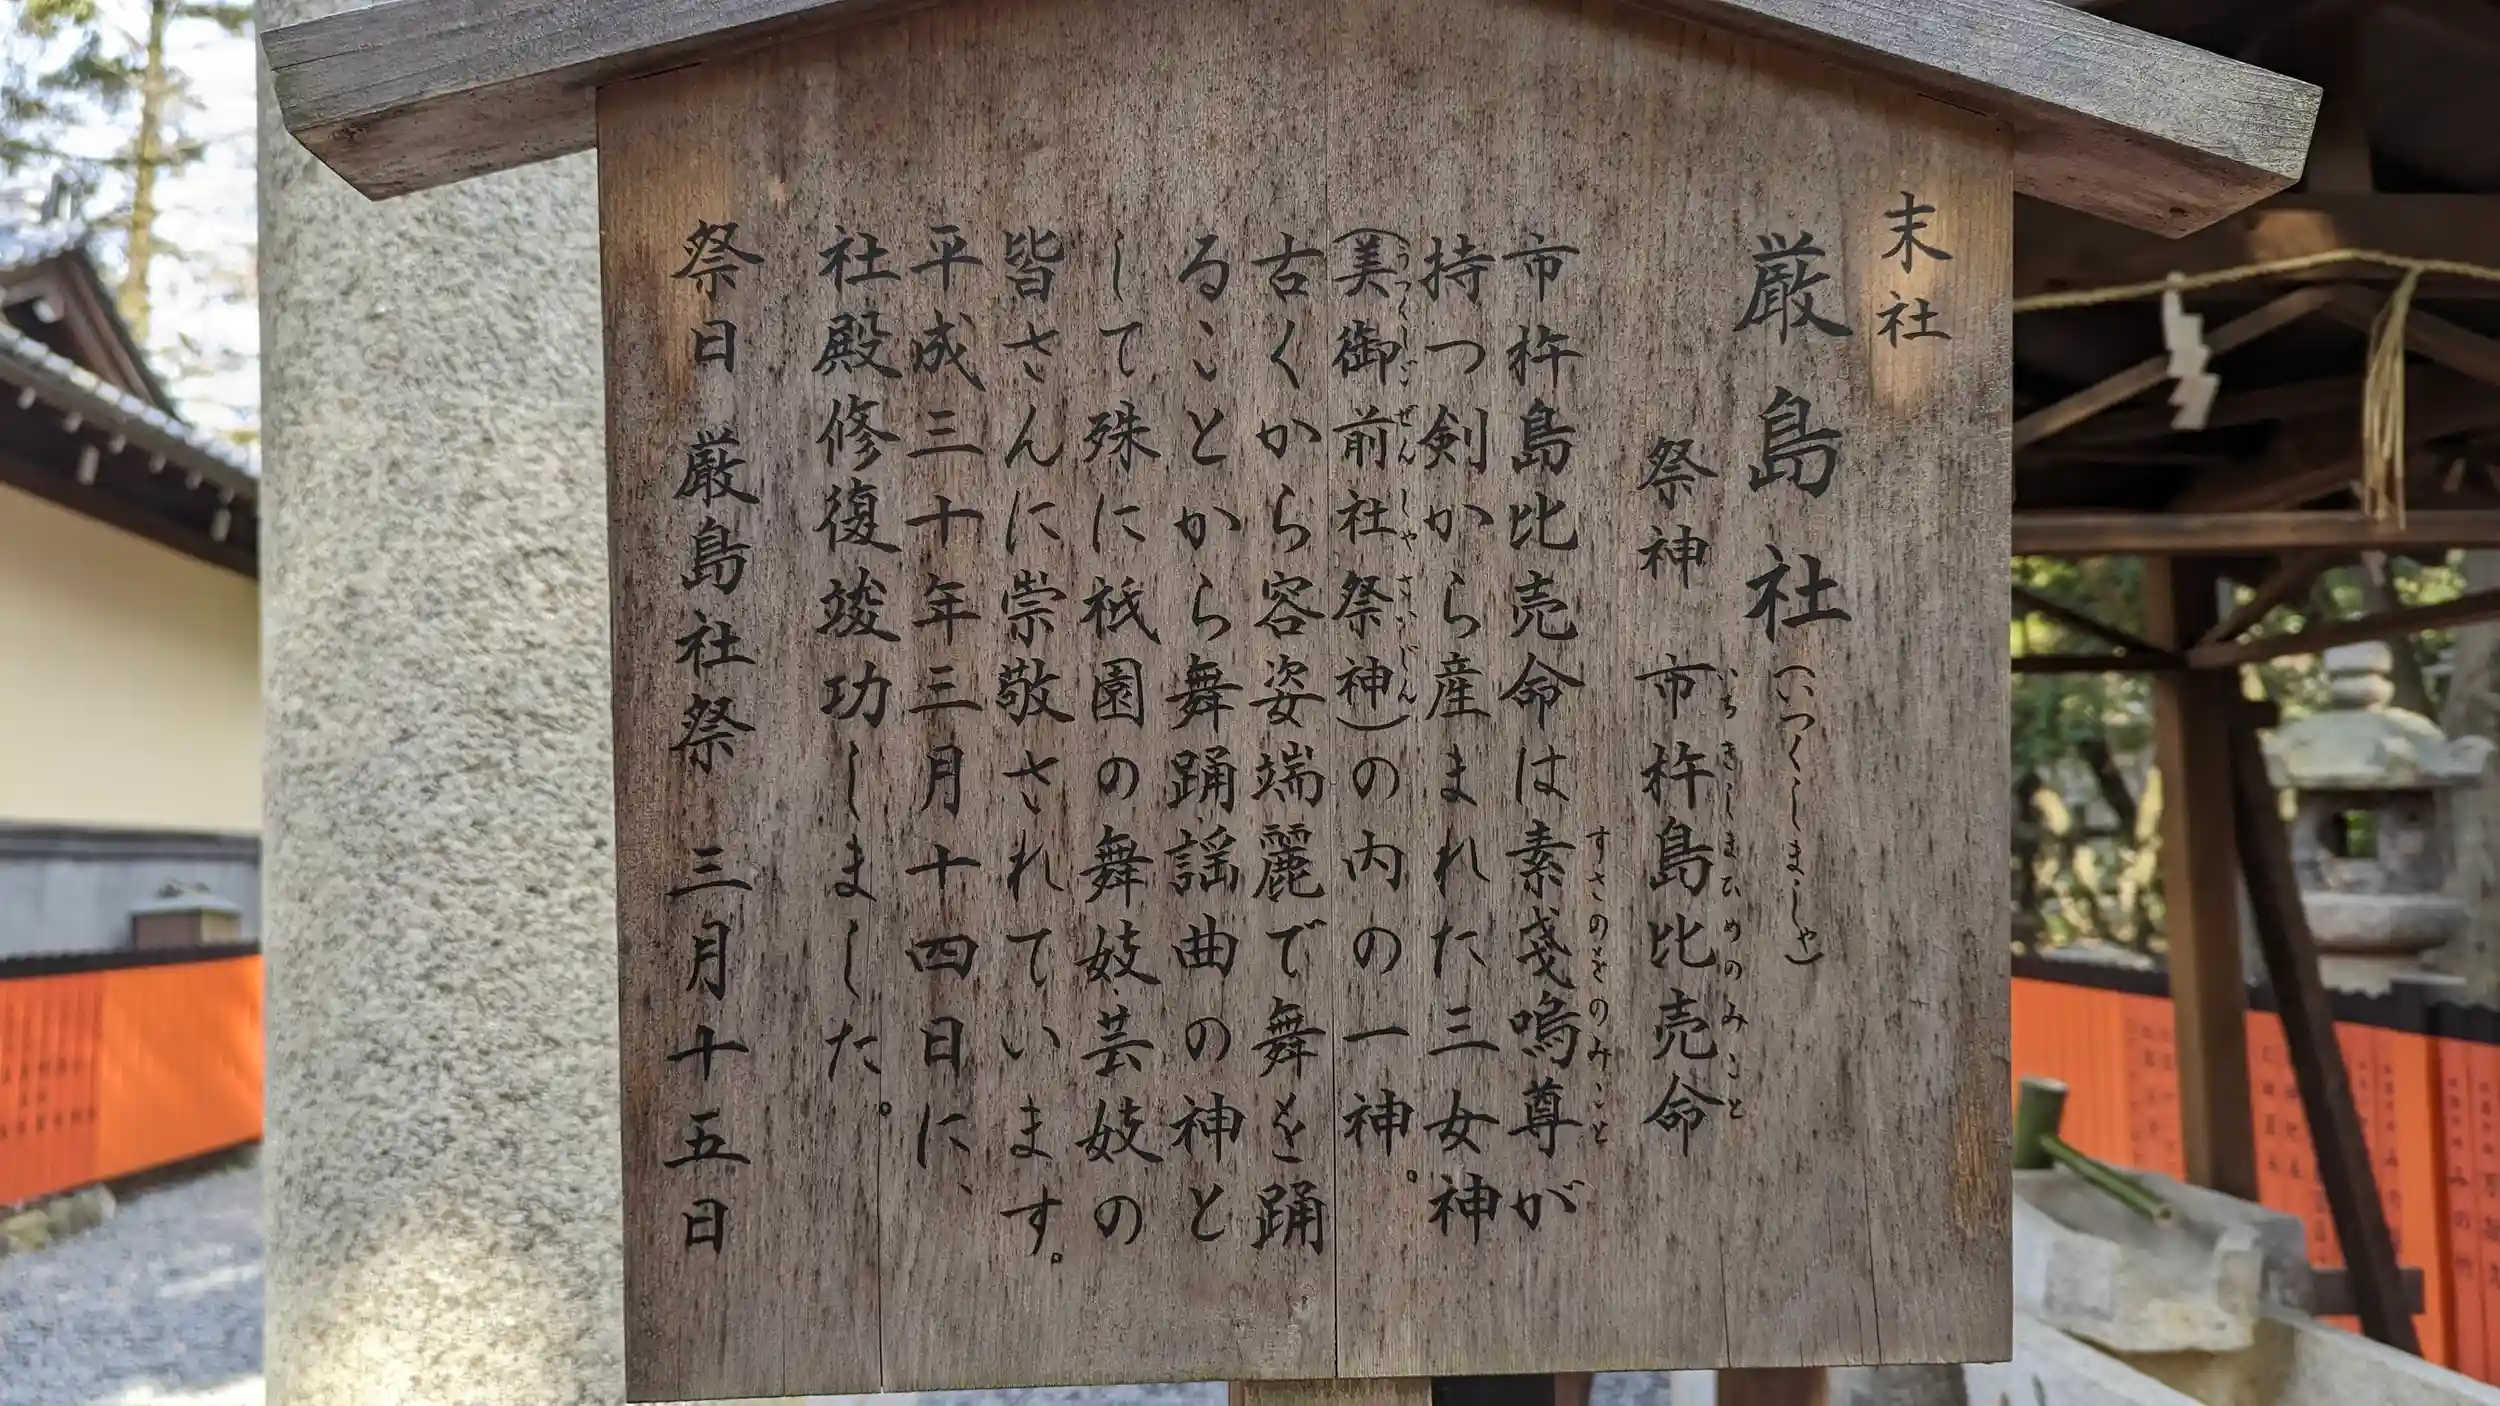 末社
厳島社(いつくしましゃ)
祭神 市杵島比売命
いちきしまひめのみこと
市杵島比売命は素戔嗚尊が
すさのをのみこと
持つ剣から産まれた三女神
(美御前社祭神)の内の一神。
うつくしごぜんしゃさいじん
古くから容姿端麗で舞を踊
ることから舞踊、謡曲の神と
して殊に祇園の舞妓、芸妓の
皆さんに崇敬されています。
平成三十年三月十四日に、
社殿修復竣功しました。
祭日 厳島社祭 三月十五日